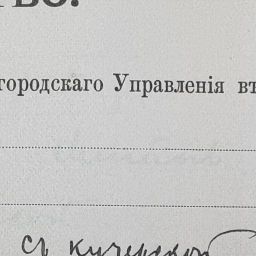 ТВО.
городскаго Управленія въ
ср кучерской